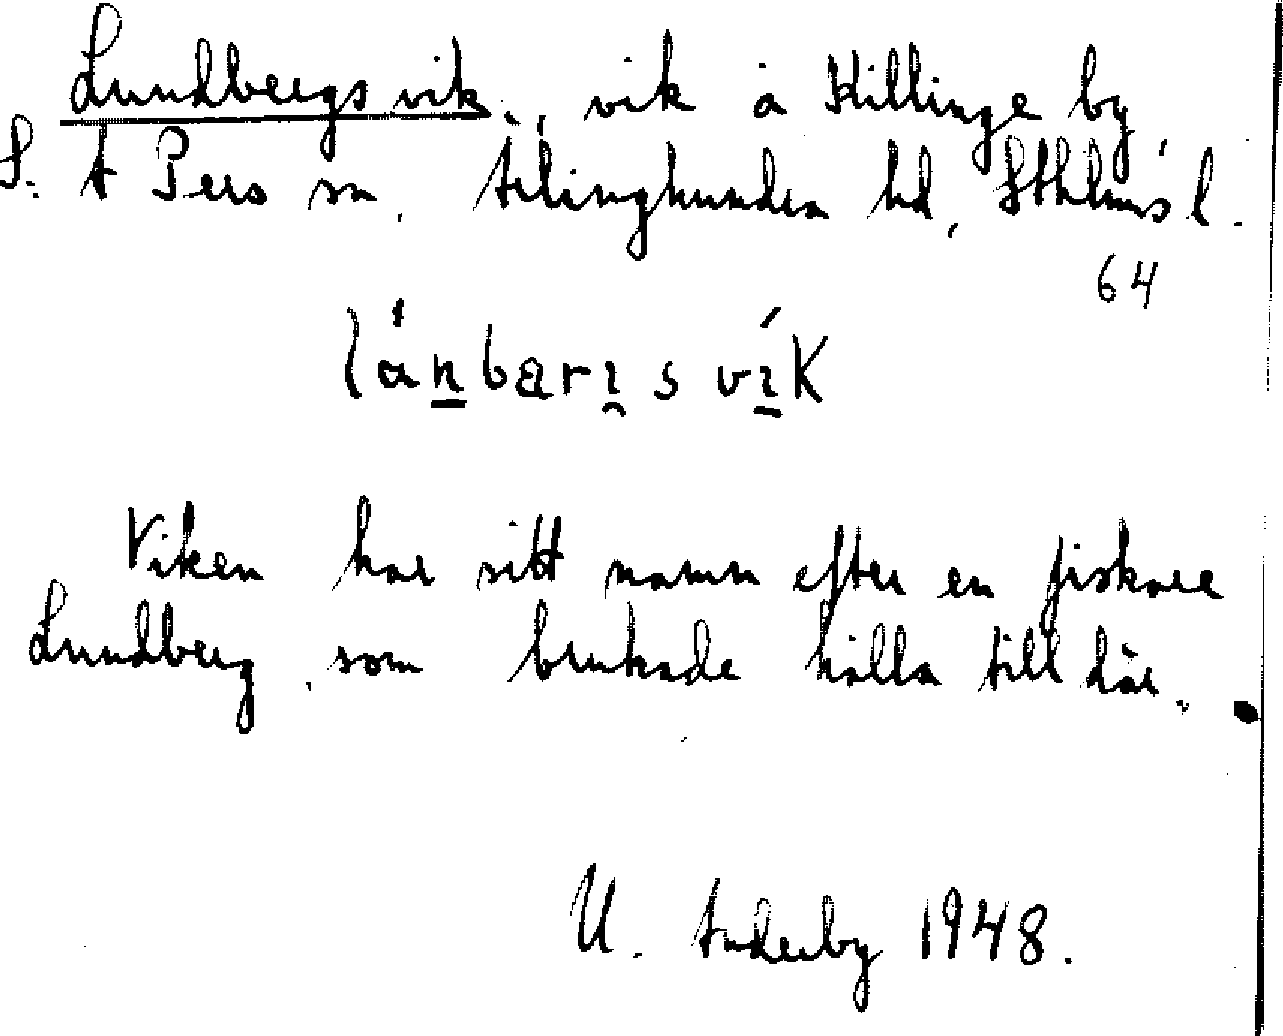 Lundbergsvik, vik å Killinge by,
S:t Pers sn, Ärlinghundra hd, Sthlms l.
64
lánbærı̯s vı́k
Viken har sitt namn efter en fiskare
Lundberg, som brukade hålla till där.
U. 1948.